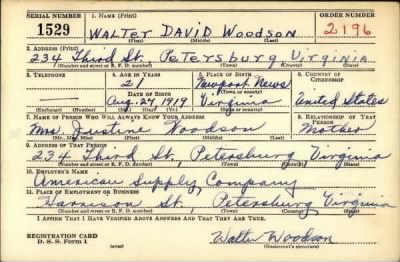 SERIAL NUMBER 1. NAME (Print) ORDER NUMBER
1529 WALTER DAVID WOODSON 2196
(First) (Middle) (Last)
2. ADDRESS (Print)
234 Third St. Petersburg Virginia
(Number and street or R. F. D. number) (Town) (County) (State)
3. TELEPHONE 4. AGE IN YEARS 5. PLACE OF BIRTH 6. COUNTRY OF CITIZENSHIP
21 Newport News
DATE OF BIRTH (Town or county)
Aug. 27, 1919 Virginia United States
(Exchange) (Number) (Mo.) (Day) (Yr.) (State or country)
7. NAME OF PERSON WHO WILL ALWAYS KNOW YOUR ADDRESS 8. RELATIONSHIP OF THAT PERSON
Mrs. Justine Woodson Mother
(Mr., Mrs., Miss) (First) (Middle) (Last)
9. ADDRESS OF THAT PERSON
234 Third St., Petersburg Virginia
(Number and street or R. F. D. number) (Town) (County) (State)
10. EMPLOYER'S NAME
American Supply Company
11. PLACE OF EMPLOYMENT OR BUSINESS
Harrison St., Petersburg Virginia
(Number and street or R. F. D. number) (Town) (County) (State)
I AFFIRM THAT I HAVE VERIFIED ABOVE ANSWERS AND THAT THEY ARE TRUE.
REGISTRATION CARD
D. S. S. Form 1 (over) Walter Woodson
(Registrant's signature)